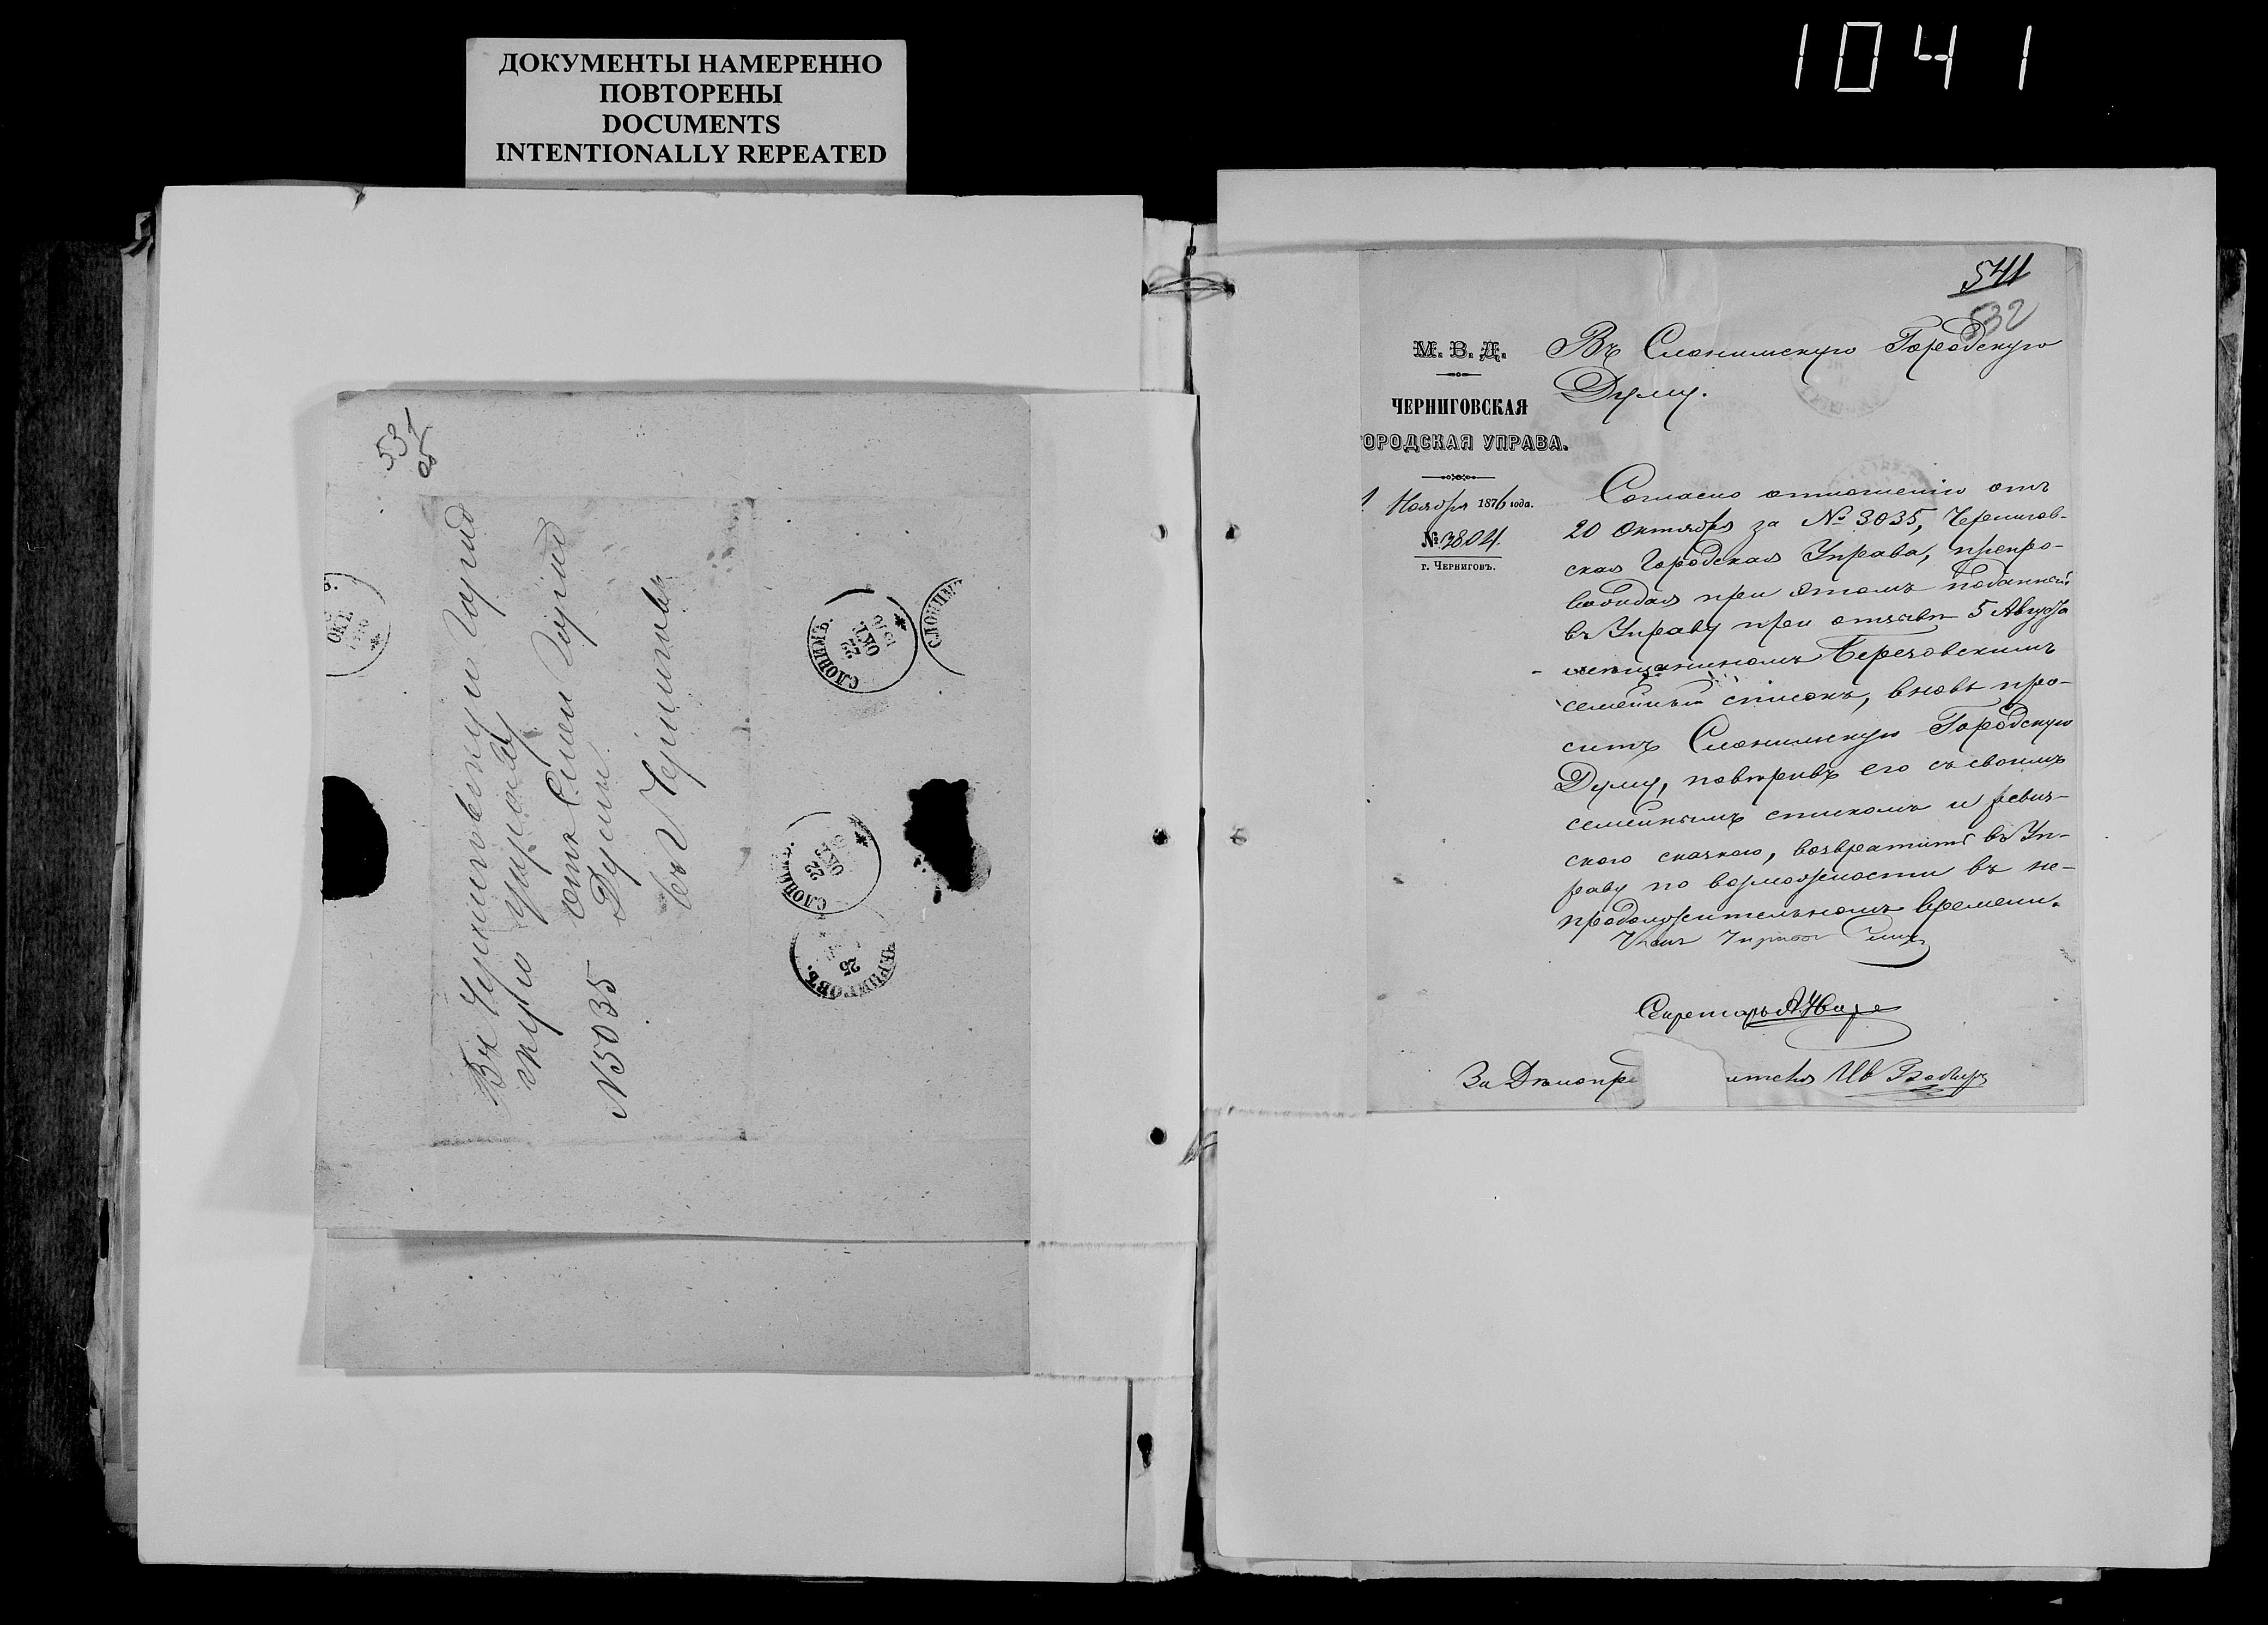 1041
ДОКУМЕНТЫ НАМЕРЕННО
ПОВТОРЕНЫ
DOCUMENTS
INTENTIONALLY REPEATED
531
об
Въ Черниговскую Город
скую управу
отъ Слон Город
Думы
№ 3035
въ г Черниговъ
СЛОНИМЪ.
22
ОКТ
1876
СЛОНИМ
СЛОНИМЪ.
22
ОКТ
ЧЕРНИГОВЪ.
25
ОКТ
541
532
М. В. Д.
ЧЕРНИГОВСКАЯ
ОРОДСКАЯ УПРАВА.
1 Ноября 1876 года.
№ 3804.
г. Черниговъ.
Въ Слонимскую Городскую
Думу.
Согласно отношенію отъ
20 Октября за № 3035, Чернигов-
ская Городская Управа, препро-
вождая при этомъ поданный
въ Управу при отзывѣ 5 Августа
мѣщаниномъ Березовскимъ
семейный списокъ, вновь про-
ситъ Слонимскую Городскую
Думу, повѣривъ его съ своимъ
семейнымъ спискомъ и ревиз-
скою сказкою, возвратить въ Уп-
раву по возможности въ не-
продолжительномъ времени.
Членъ Управы
Секретарь
За Дѣлопр ителя Ив